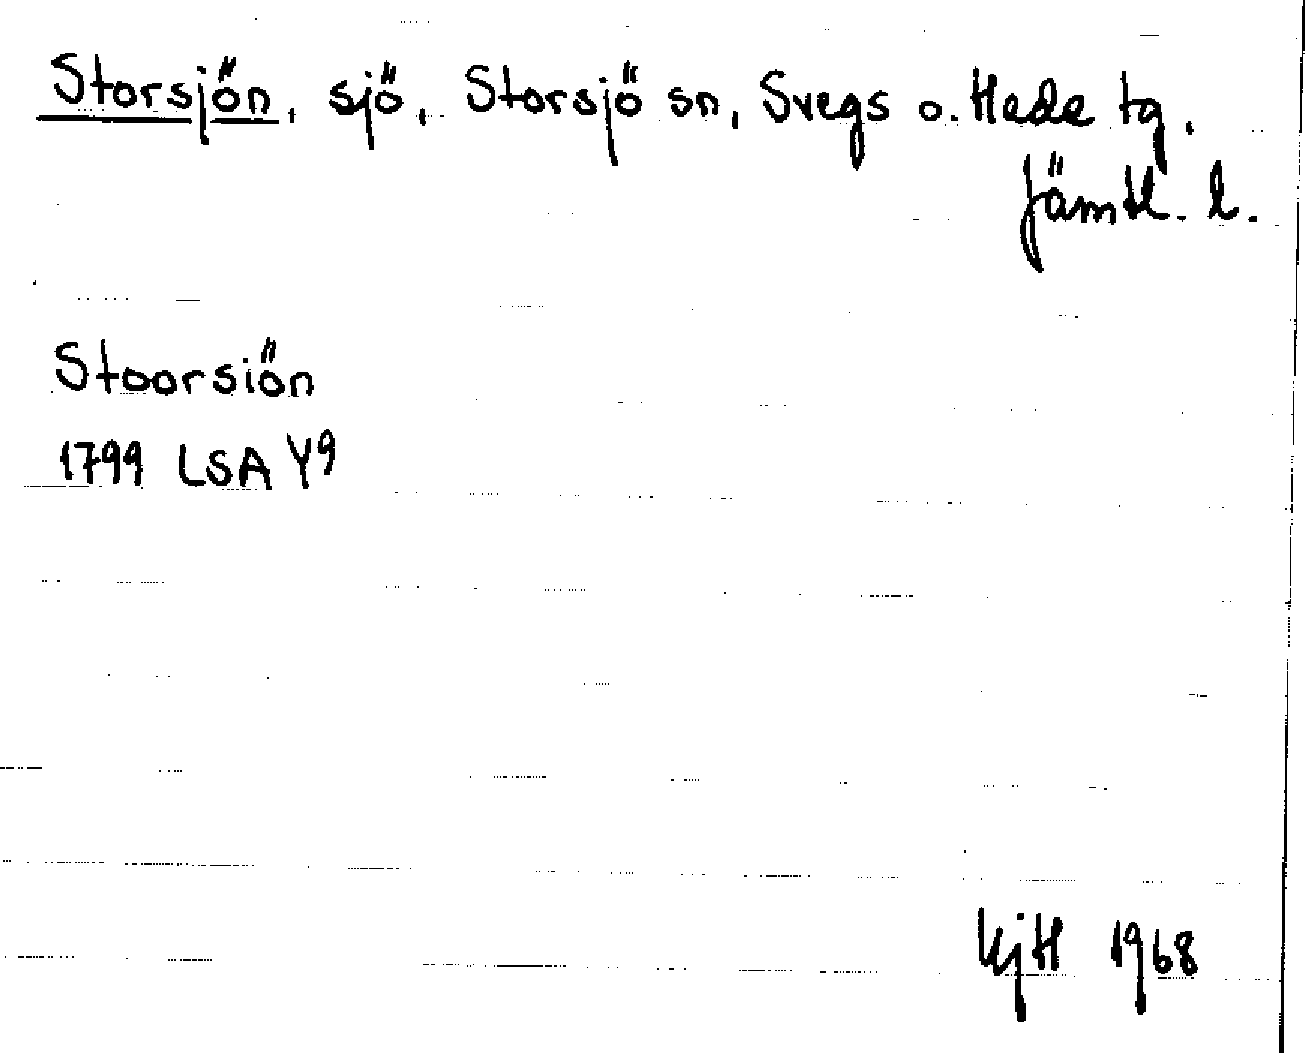 Storsjön, sjö, Storsjö sn, Svegs o. Hede tg.
Jämtl. l.
Stoorsiön
1799 LSA Y9
KjH 1968